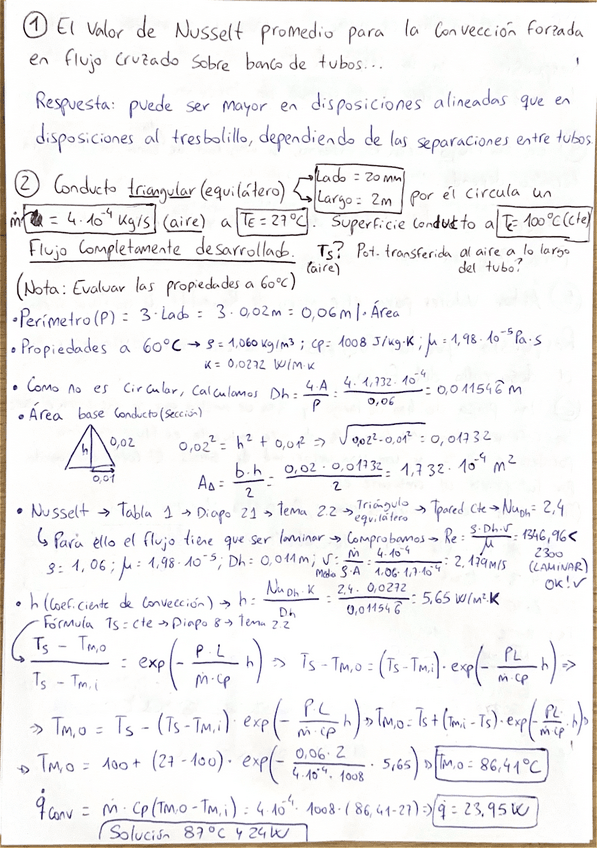 ① El Valor de Nusselt promedio para la Convección forzada
en flujo Cruzado sobre banco de tubos...
Respuesta: puede ser mayor en disposiciones alineadas que en
disposiciones al tresbolillo, dependiendo de las separaciones entre tubos
② Conducto triangular (equilátero) Lado = 20 mm
Largo = 2m por él circula un
ṁ = 4·10⁻⁴ Kg/s (aire) a TE = 27°C. Superficie conducto a Tc = 100°C (cte)
Flujo Completamente desarrollado. Ts? Pot. transferida al aire a lo largo
(aire) del tubo?
(Nota: Evaluar las propiedades a 60°C)
• Perímetro (P) = 3·Lado = 3·0,02m = 0,06m | · Área
• Propiedades a 60°C → ρ = 1,060 kg/m³; cp = 1008 J/kg·K; μ = 1,98·10⁻⁵ Pa·s
K = 0,0272 W/m·K
• Como no es Circular, Calculamos Dh = 4·A/P = 4·1,732·10⁻⁴/0,06 = 0,011546̂ m
• Área base Conducto (Sección)
h 0,02 0,01
0,02² = h² + 0,01² ⇒ √0,02²-0,01² = 0,01732
A△ = b·h/2 = 0,02·0,01732/2 = 1,732·10⁻⁴ m²
• Nusselt → Tabla 1 → Diapo 21 → tema 2.2 → Triángulo equilátero → Tpared cte → NuDh = 2,4
↳ Para ello el flujo tiene que ser laminar → Comprobamos → Re = ρ·Dh·v/μ = 1346,96 < 2300
ρ = 1,06; μ = 1,98·10⁻⁵; Dh = 0,011m; v = ṁ/ρ·A = 4·10⁻⁴/1.06·1,7·10⁻⁴ = 2,179 m/s (LAMINAR)
OK! √
• h (Coeficiente de Convección) → h = NuDh·K/Dh = 2,4·0,0272/0,011546̂ = 5,65 W/m²·K
Fórmula Ts = cte → Diapo 8 → tema 2.2
Ts - Tm,o/Ts - Tm,i = exp(- P·L/ṁ·cp h) ⇒ Ts - Tm,o = (Ts - Tm,i)·exp(- PL/ṁ·cp h) ⇒
⇒ Tm,o = Ts - (Ts - Tm,i)·exp(- P·L/ṁ·cp h) ⇒ Tm,o = Ts + (Tm,i - Ts)·exp(- P·L/ṁ·cp h) ⇒
⇒ Tm,o = 100 + (27 - 100)·exp(- 0,06·2/4·10⁻⁴·1008 · 5,65) ⇒ Tm,o = 86,41°C
q̇conv = ṁ·cp(Tm,o - Tm,i) = 4·10⁻⁴·1008·(86,41-27) ⇒ q̇ = 23,95 W
Solución 87°C y 24W